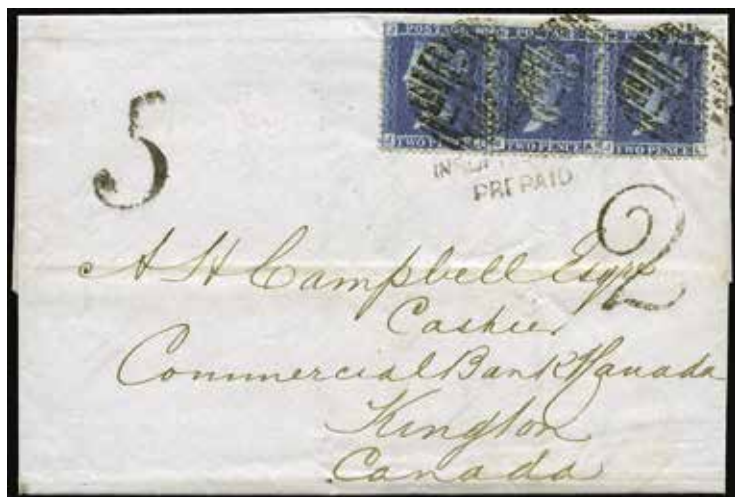 POSTAGE POSTAGE POSTAGE
TWO PENCE TWO PENCE TWO PENCE
PREPAID
5
2
A H Campbell Esqre
Cashier
Commercial Bank Canada
Kingston
Canada